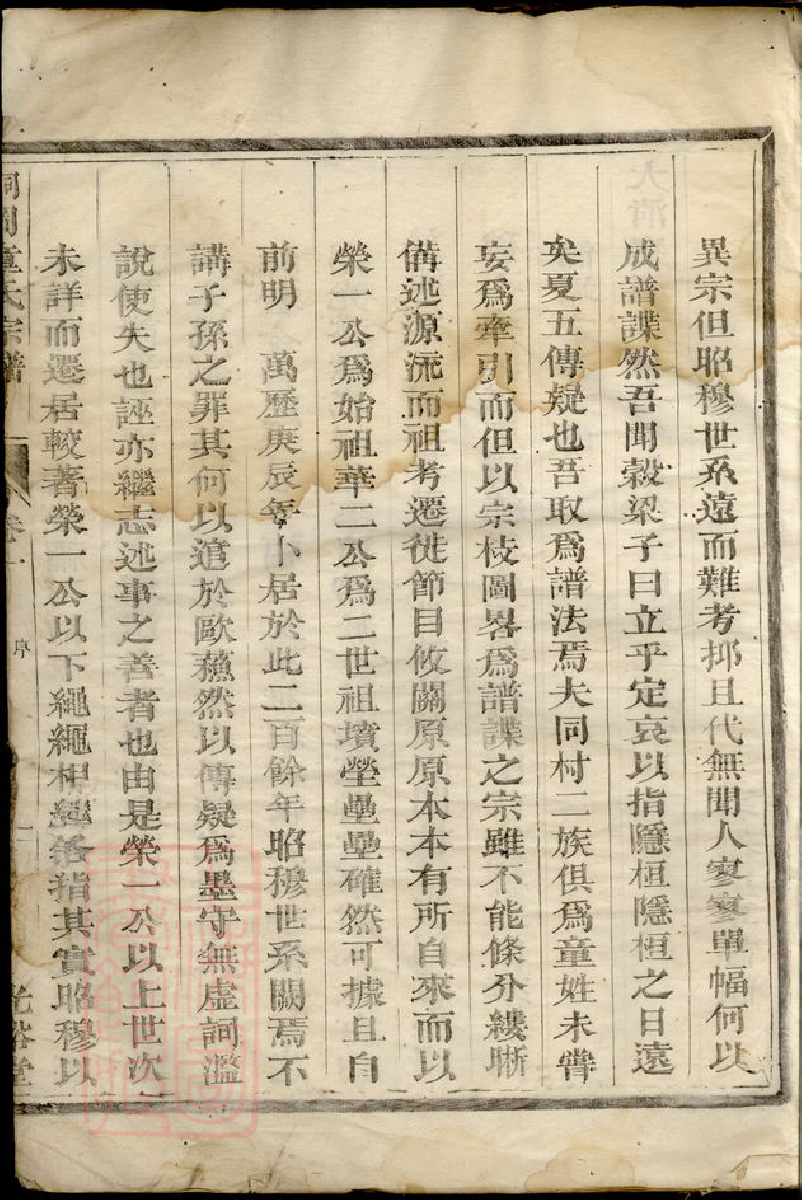 異宗但昭穆世系遠而難考抑且代無聞人寥寥單幅何以
成譜諜然吾聞穀梁子曰立乎定哀以指隱桓隱桓之日遠
矣夏五傳疑也吾取爲譜法焉夫同村二族俱爲童姓未嘗
妄爲牽引而但以宗枝圖畧爲譜諜之宗雖不能條分縷晰
備述源流而祖考遷徙節目攸關原原本本有所自來而以
榮一公爲始祖華二公爲二世祖墳塋壘壘確然可據且自
前明 萬歷庚辰年卜居於此二百餘年昭穆世系闕焉不
講子孫之罪其何以逭於歐蘓然以傳疑爲墨守無虛詞濫
說使失也誣亦繼志述事之善者也由是榮一公以上世次
未詳而遷居較著榮一公以下繩繩相繼各指其實昭穆以
童氏宗譜 卷 序 光裕堂